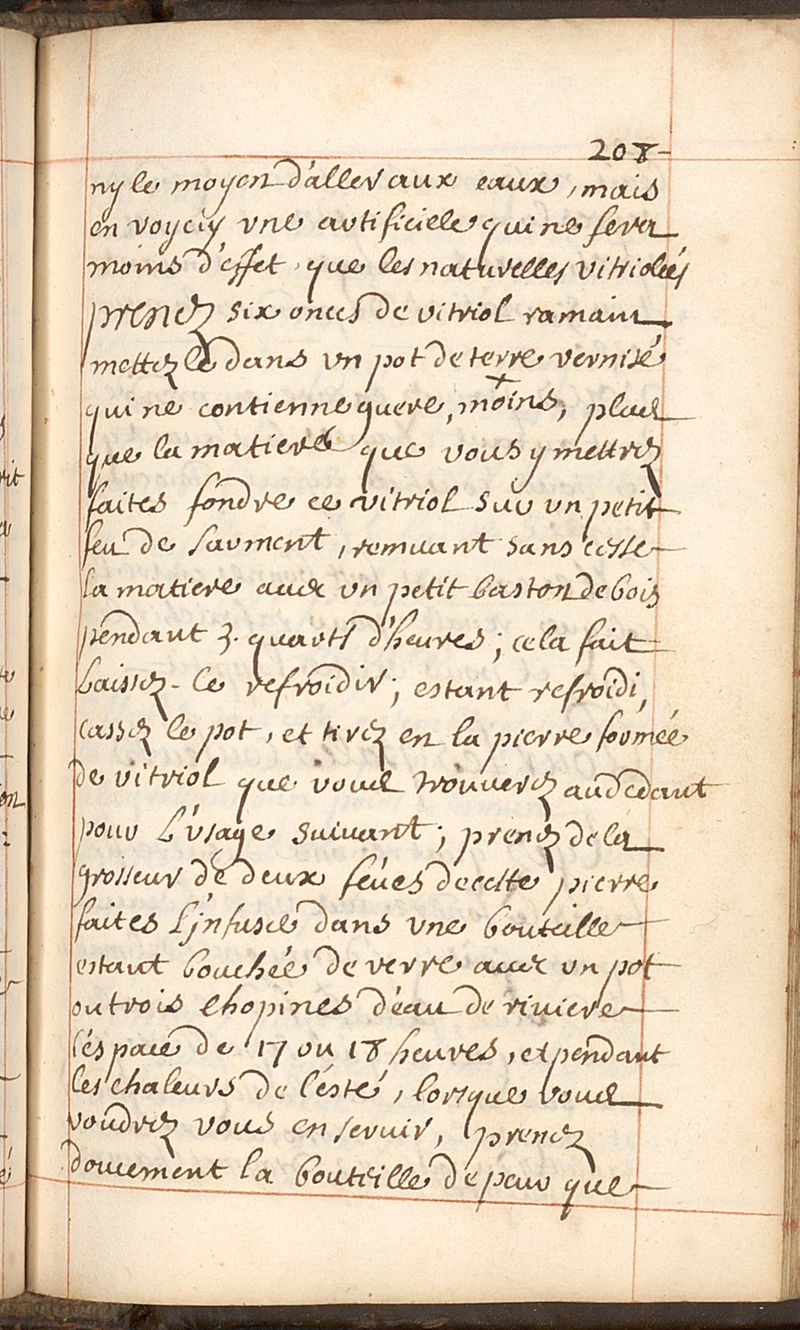 208
ny le moyen d'aller aux eaux, mais
en voycy vne artificiele qui ne sera
moins d'effet que les naturelles vitriolées
prenez six onces de vitriol romain
mettez le dans vn pot de terre vernisé
qui ne contienne guere, moins, plus
que la matiere que vous y mettrez
faites fondre ce vitriol sur vn petit
feu de sarment, remuant sans cesse
la matiere avec vn petit baston de bois
pendant 3. quarts d'heures; cela fait
Laissez-le refroidir; estant refroidi,
cassez le pot, et tirez en la pierre formée
de vitriol que vous trouverez audedant
pour L'usage suivant; prenez de la
grosseur de deux féues de cette pierre
faites L'jnfuser dans vne bouteille
estant bouchée de verre avec vn pot
ou trois chopines d'eau de riviere
l'espace de 17 ou 18 heures, et pendant
les chaleurs de l'esté, lorsque vous
voudrez vous en servir, prenez
doucement la bouteille de peur que